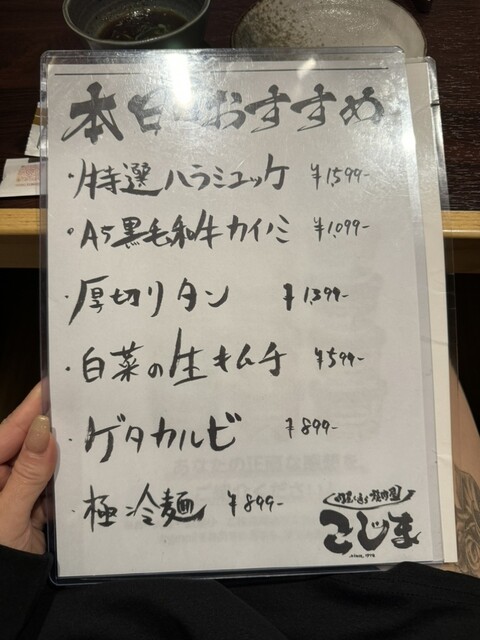 本日のおすすめ
・特選ハラミユッケ ¥1,599-
・A5黒毛和牛カイノミ ¥1,099-
・厚切りタン ¥1,399-
・白菜の生キムチ ¥599-
・ゲタカルビ ¥899-
・極冷麺 ¥899-
こじま